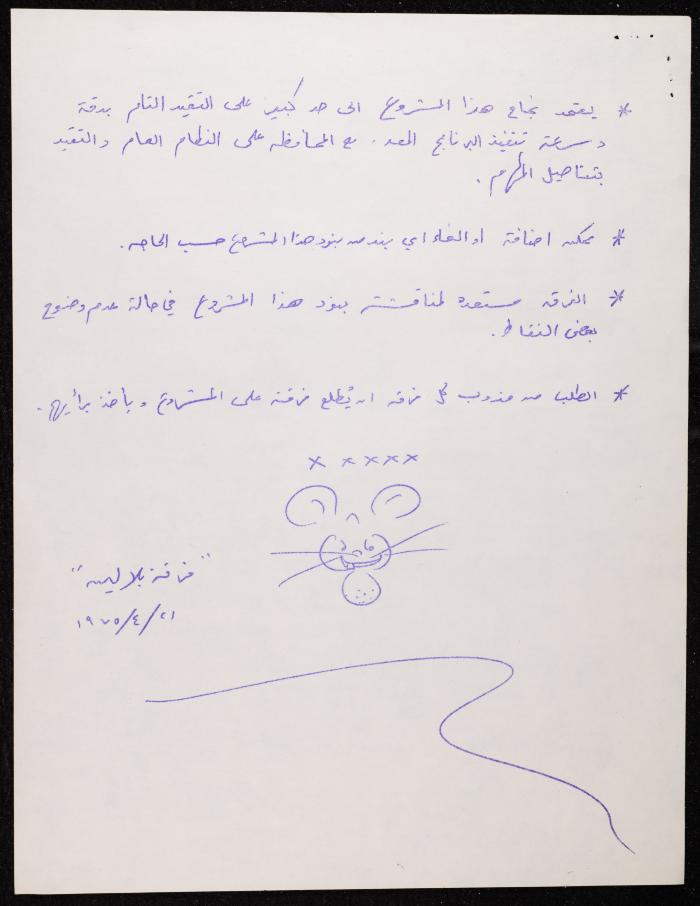 * يعتمد نجاح هذا المشروع الى حد كبير على التقيد التام بدقة
و سرعة تنفيذ البرنامج المعد. مع المحافظه على النظام العام والتقيد
بتفاصيل المهام.
* يمكن اضافة او الغاء اي بند من بنود هذا المشروع حسب الحاجه.
* الفرقه مستعده لمناقشة بنود هذا المشروع في حالة عدم وضوح
بعض النقاط.
* الطلب من مندوب كل فرقه ان يُطلع فرقته على المشروع ويأخذ برأيهم.
× × × × ×
"فرقة بلالين"
٢١/٤/١٩٧٥